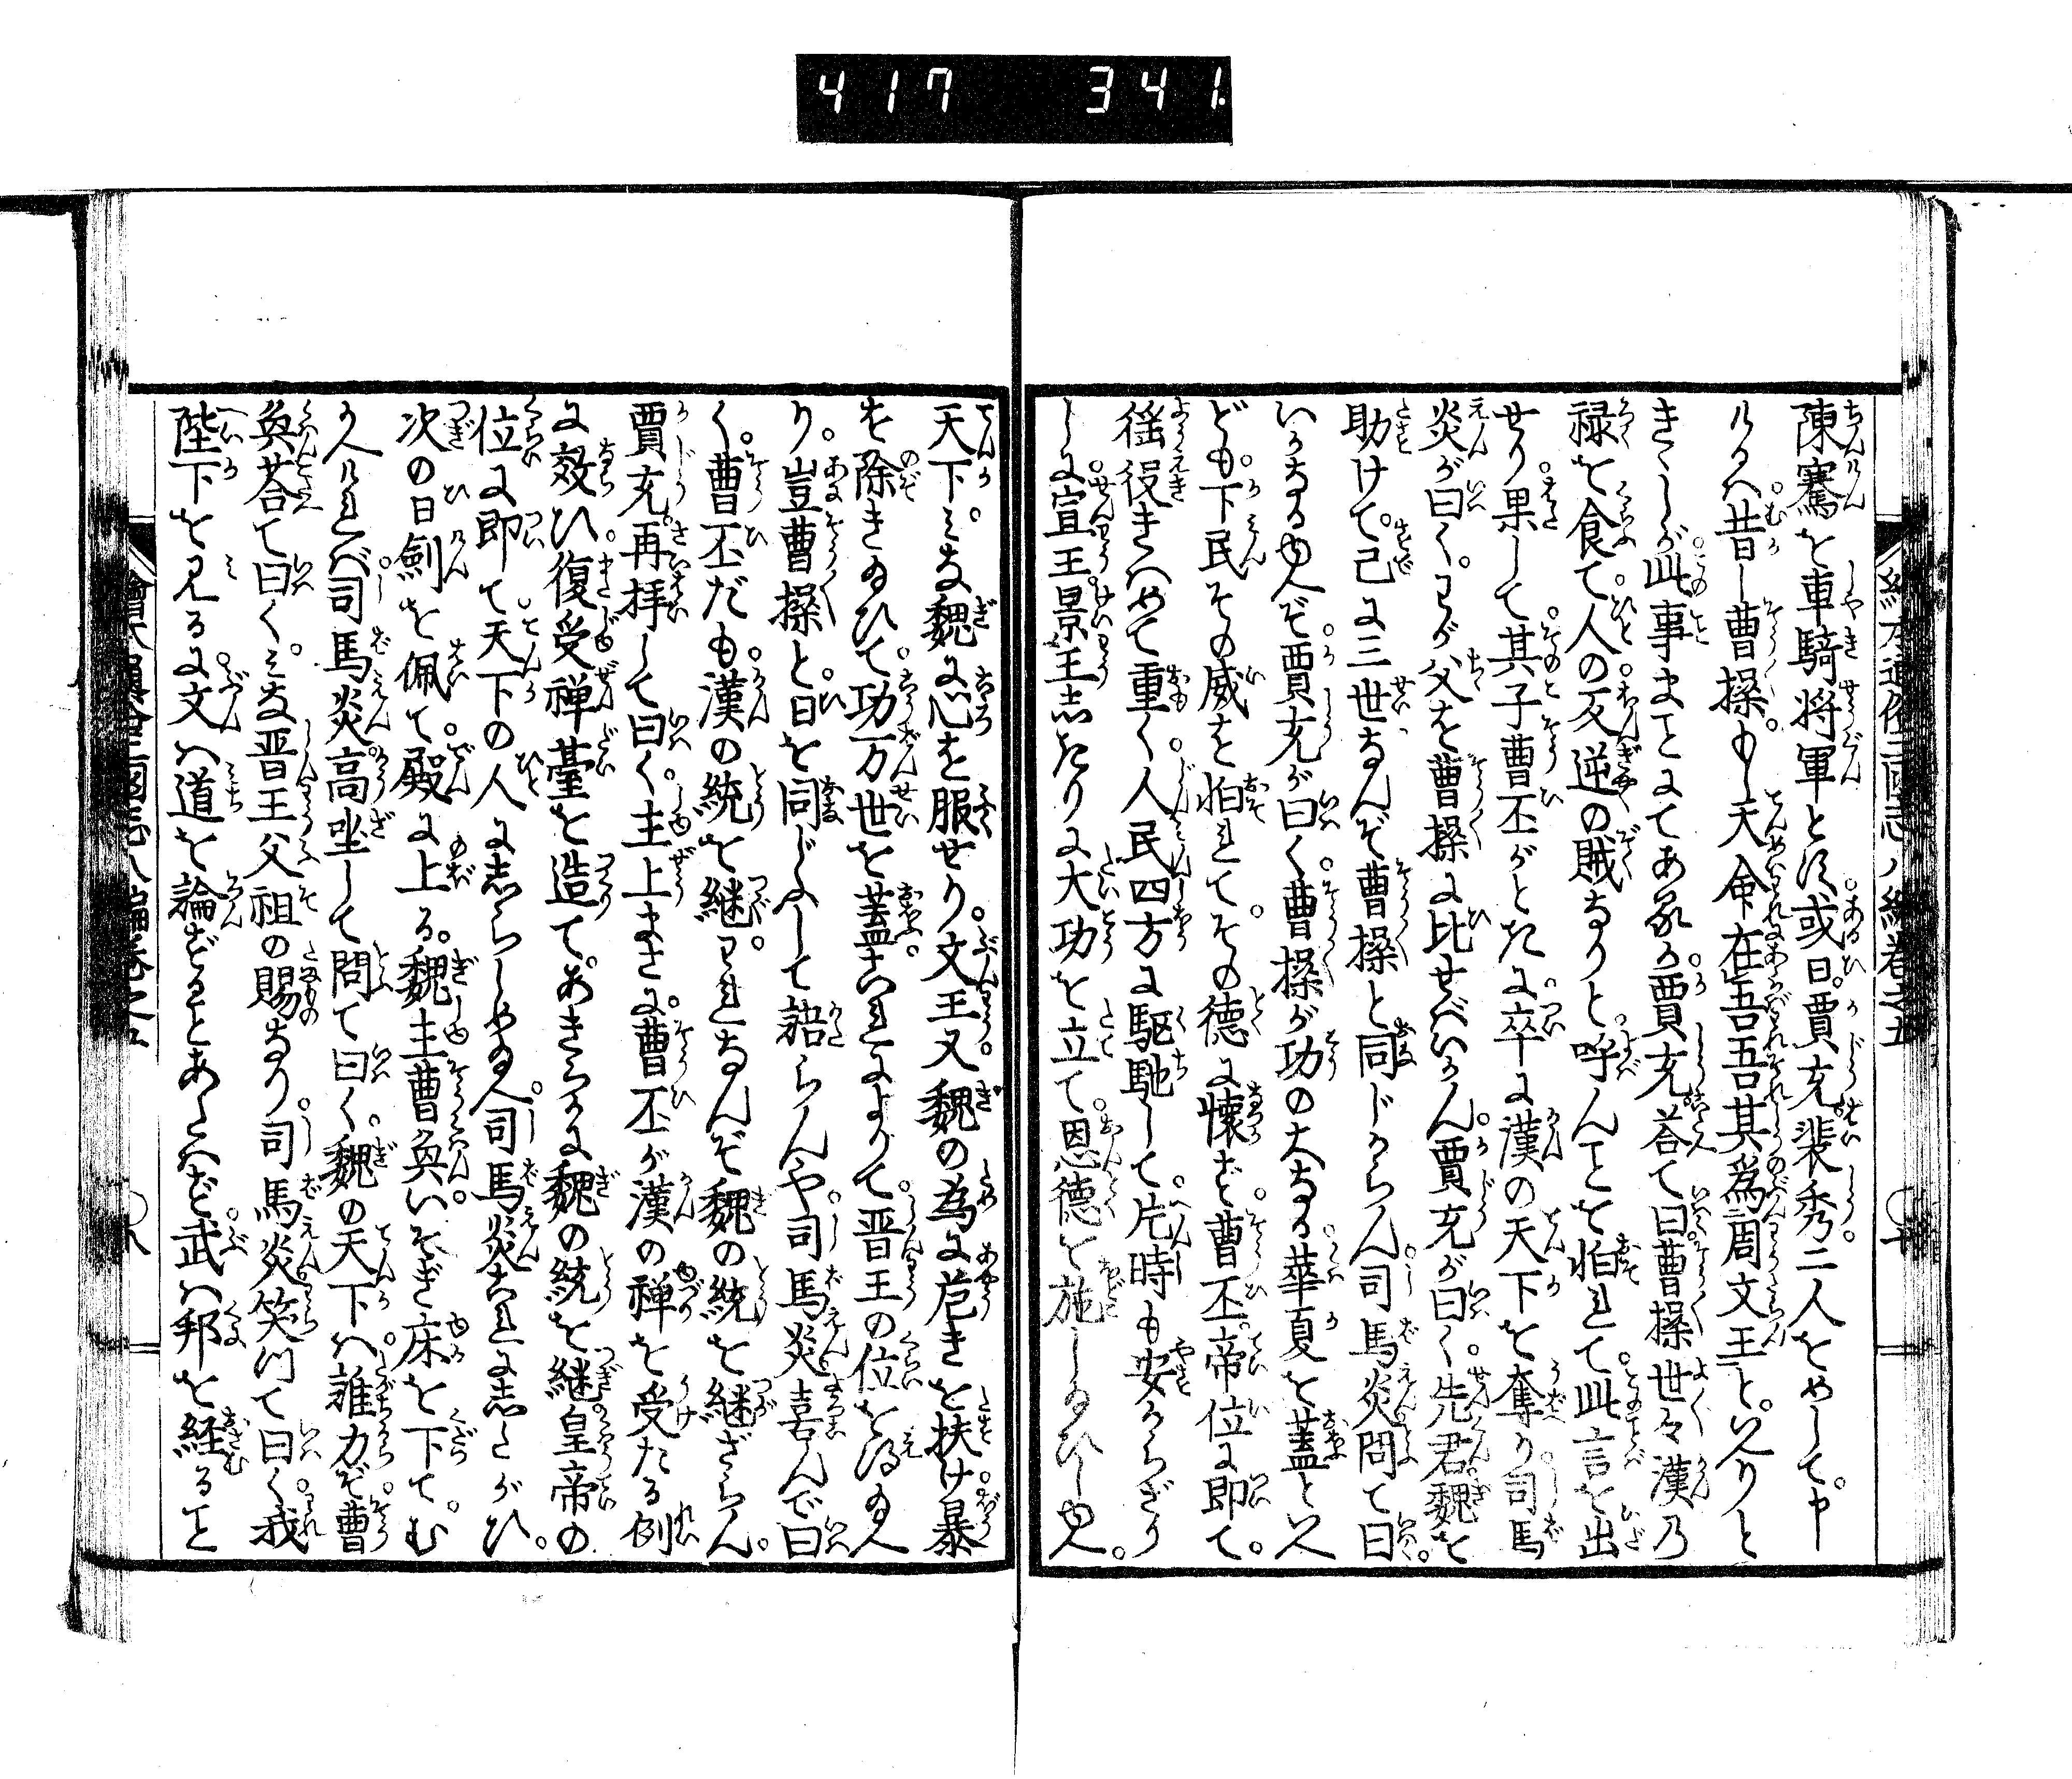 417 341
陳騫を車騎将軍とす或日賈充裴秀二人をめして申
けるハ昔し曹操も天命在吾吾其爲周文王といへりと
きゝしが此事まことにてあるか賈充荅て曰曹操世々漢乃
禄を食て人の反逆の賊なりと呼んことを怕れて此言を出
せり果して其子曹丕がときに卒に漢の天下を奪り司馬
炎が曰くわが父を曹操に比せべいかん賈充が曰く先君魏を
助けて己に三世なんぞ曹操と同じからん司馬炎問て曰
いかなるゆへぞ賈充が曰く曹操が功の大なる華夏を蓋といへ
ども下民その威を怕れてその德に懐ず曹丕帝位に即て
徭役きハめて重く人民四方に駆馳して片時も安からざり
しに宣王景王志きりに大功を立て恩德を施し給ひしゆへ
天下ミな魏に心を服せり文王又魏の為に危きを扶け暴
を除き給ひて功万世を蓋ふこれによりて晋王の位を得給へ
り豈曹操と日を同じふして語らんや司馬炎喜んで曰
く曹丕だも漢の統を継われなんぞ魏の統を継ざらん
賈充再拝して曰く主上まさに曹丕が漢の禅を受たる例
に效ひ復受禅臺を造てあきらかに魏の統を継皇帝の
位に即て天下の人に志らしめ給へ司馬炎これに志たがひ
次の日劍を佩て殿に上る魏主曹奐いそぎ床を下てむ
かへければ司馬炎高坐して問て曰く魏の天下ハ誰力ぞ曹
奐荅て曰くミな晋王父祖の賜なり司馬炎笑て曰く我
陛下を見るに文ハ道を論ずることあたハず武ハ邦を経ること